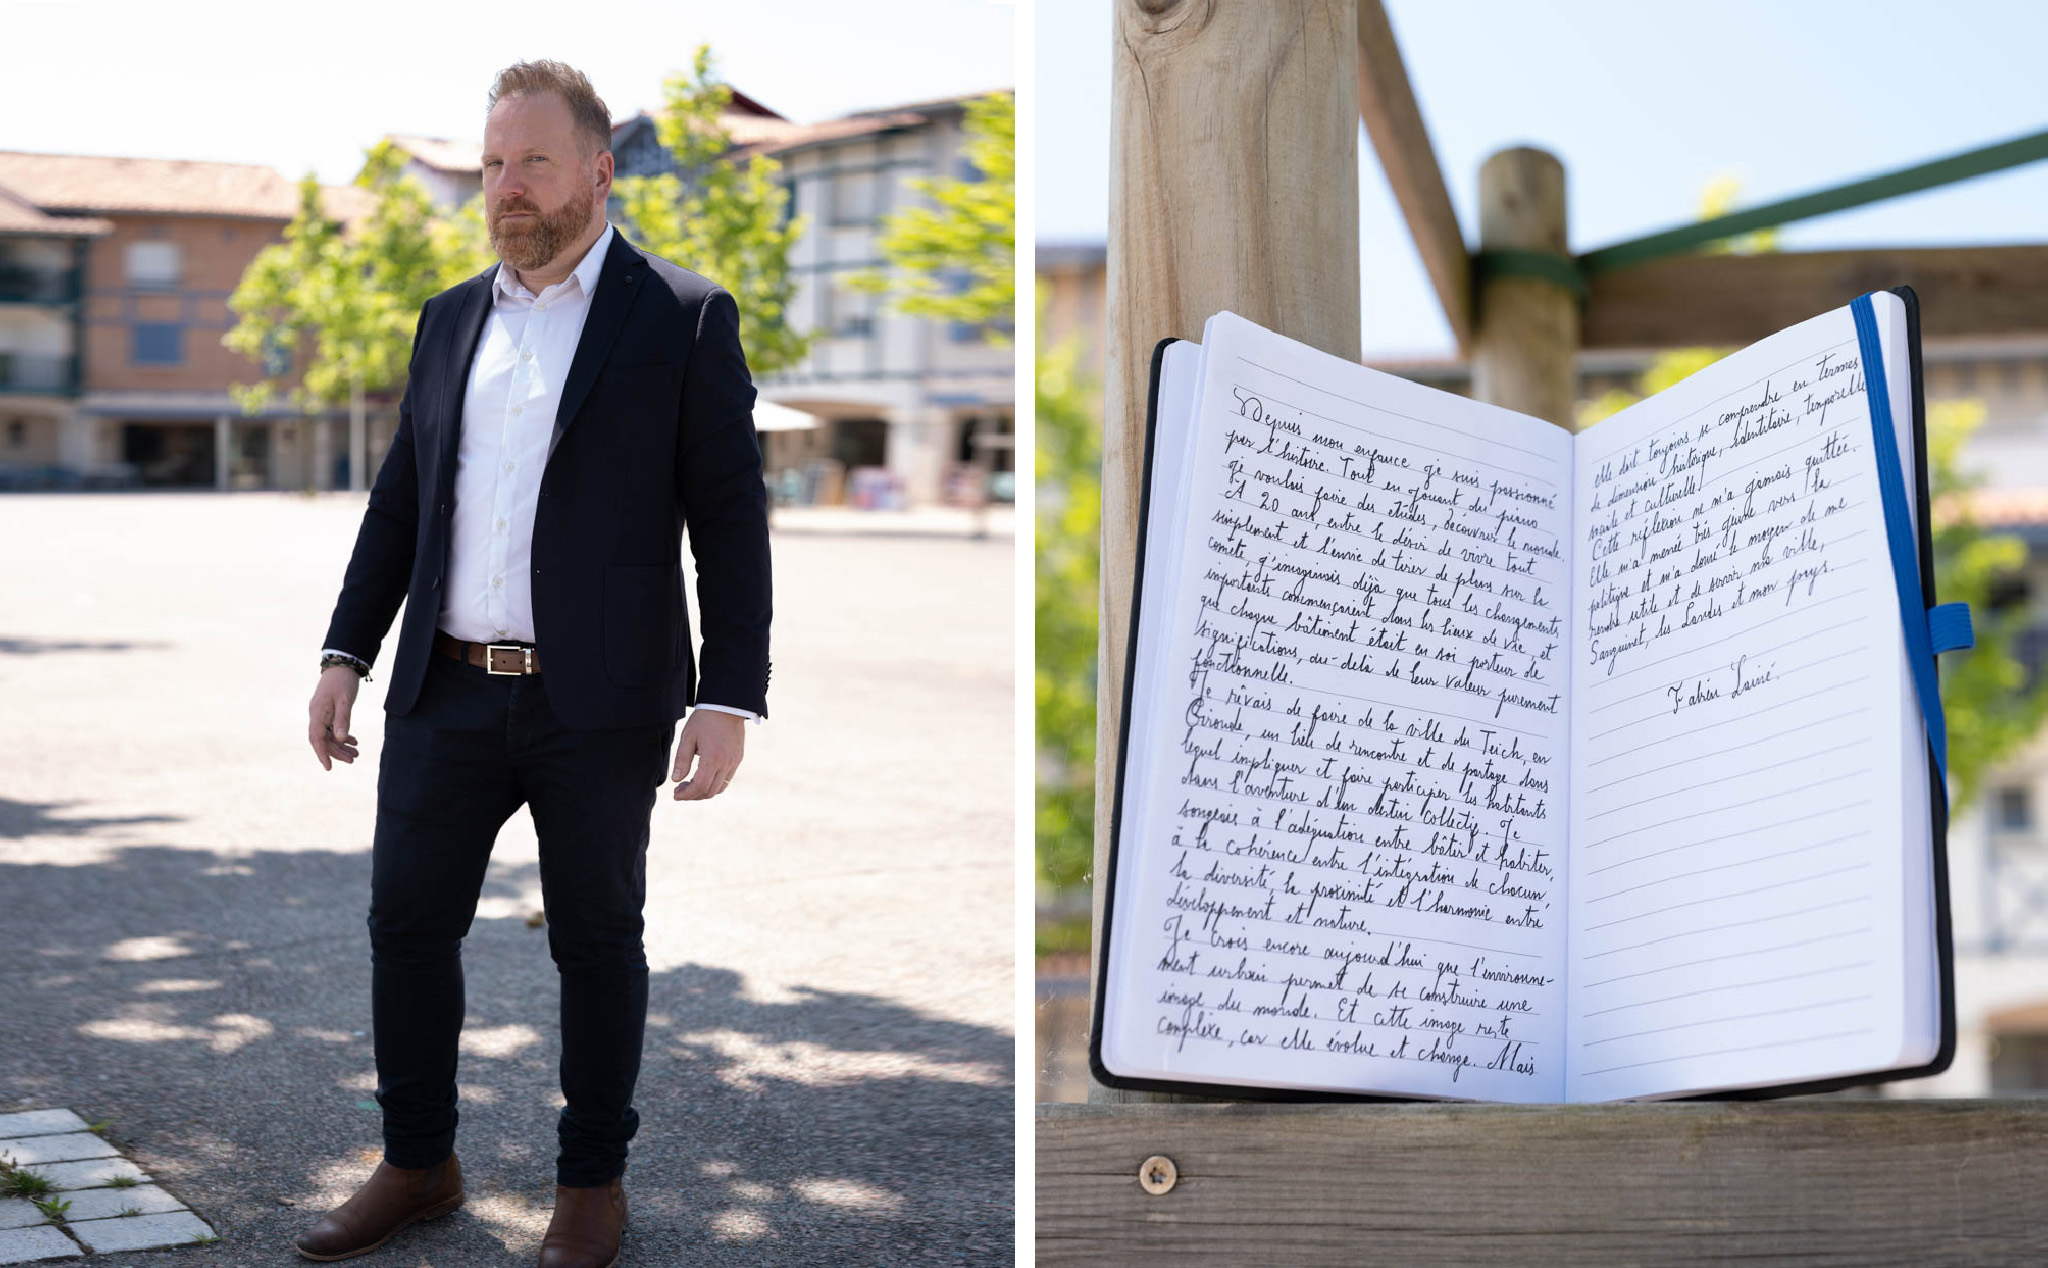 Depuis mon enfance je suis passionné
par l'histoire. Tout en jouant du piano
je voulais faire des études, découvrir le monde.
A 20 ans, entre le désir de vivre tout
simplement et l'envie de tirer de plans sur la
comète, j'imaginais déjà que tous les changements
importants commençaient dans les lieux de vie, et
que chaque bâtiment était en soi porteur de
significations, au-delà de leur valeur purement
fonctionnelle.
Je rêvais de faire de la ville du Teich, en
Gironde, un lieu de rencontre et de partage dans
lequel impliquer et faire participer les habitants
dans l'aventure d'un destin collectif. Je
songeais à l'adéquation entre bâtir et habiter,
à la cohérence entre l'intégration de chacun,
la diversité, la proximité et l'harmonie entre
développement et nature.
Je crois encore aujourd'hui que l'environne-
ment urbain permet de se construire une
image du monde. Et cette image reste
complexe, car elle évolue et change. Mais
elle doit toujours se comprendre en termes
de dimension historique, identitaire, temporelle
sociale et culturelle.
Cette réflexion ne m'a jamais quittée.
Elle m'a menée très jeune vers la
politique et m'a donné le moyen de me
rendre utile et de servir ma ville,
Sanguinet, les Landes et mon pays.
Fabien Lainé.